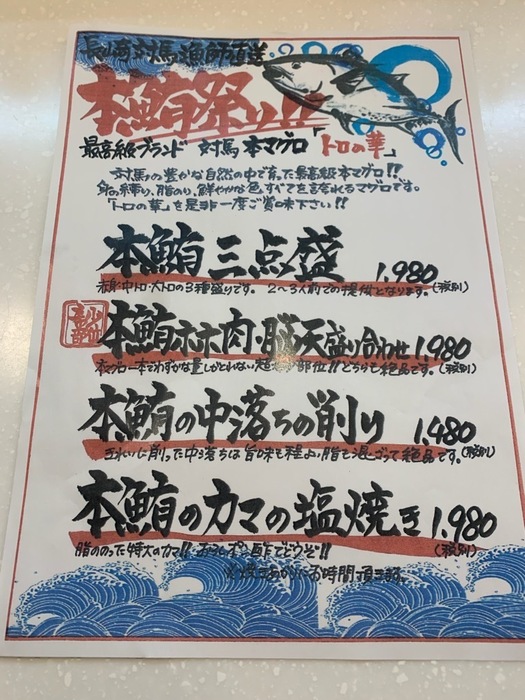 長崎対馬漁師直送
本鮪祭り!!
最高級ブランド 対馬 本マグロ「トロの華」
対馬の豊かな自然の中で育った最高級本マグロ!!
身の締り、脂のり、鮮やかな色、すべてを誇れるマグロです。
「トロの華」を是非一度ご賞味下さい!!
本鮪 三点盛 1,980
赤身・中トロ・大トロの3種盛りです。 2〜3人前での提供となります。(税別)
本鮪ホホ肉・脳天盛り合わせ 1,980
本マグロ一本でわずかな量しかとれない 部位!!どちらも絶品です。(税別)
本鮪の中落ちの削り 1,480
きれいに削った中落ちは 旨味も程よい脂も混ざって絶品です。(税別)
本鮪のカマの塩焼き 1,980
脂ののった特大のカマ!! おろしポン酢でどうぞ!! (税別)
お時間頂